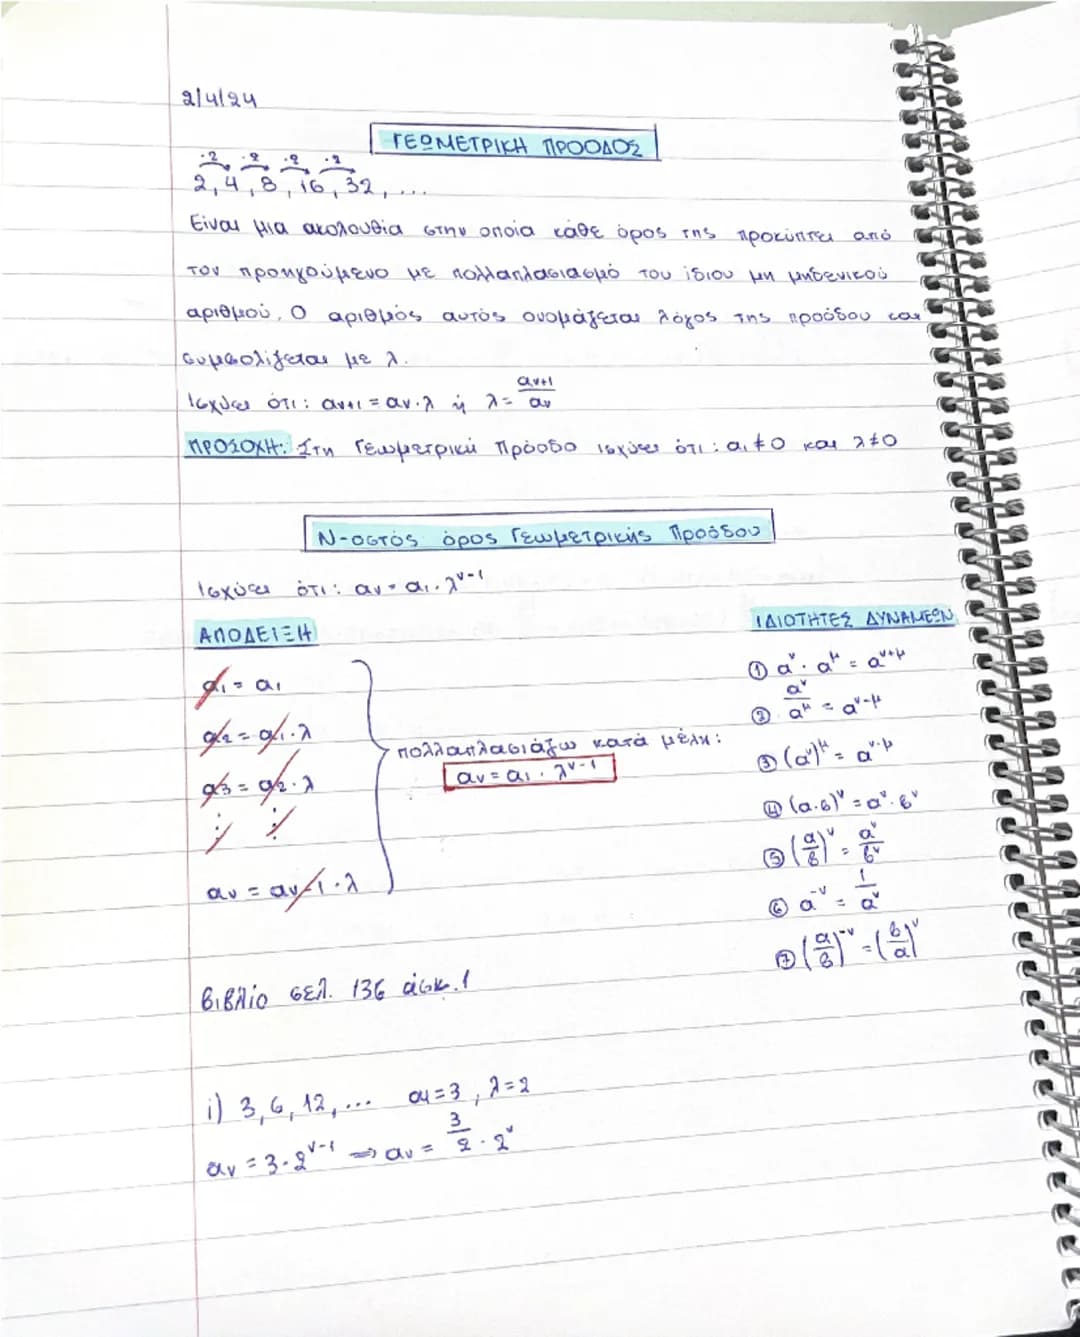 2/4/24
ΓΕΩΜΕΤΡΙΚΗ ΠΡΟΟΔΟΣ
·2 ·2 ·2 ·2
2, 4, 8, 16, 32, ...
Είναι μια ακολουθία στην οποία κάθε όρος της προκύπτει από
τον προηγούμενο με πολλαπλασιασμό του ίδιου μη μηδενικού
αριθμού. Ο αριθμός αυτός ονομάζεται λόγος της προόδου και
συμβολίζεται με λ.
Ισχύει ότι: αν+1 = αν·λ ή λ = αν+1/αν
ΠΡΟΣΟΧΗ: Στη Γεωμετρική Πρόοδο ισχύει ότι: α1≠0 και λ≠0
Ν-οστός όρος Γεωμετρικής Προόδου
Ισχύει ότι: αν = α1·λ^ν-1
ΑΠΟΔΕΙΞΗ
α1 = α1
α2 = α1·λ
α3 = α2·λ
⋮ ⋮
αν = αν-1·λ
πολλαπλασιάζω κατά μέλη:
αν = α1·λ^ν-1
ΙΔΙΟΤΗΤΕΣ ΔΥΝΑΜΕΩΝ
① α^ν · α^μ = α^ν+μ
② α^ν/α^μ = α^ν-μ
③ (α^ν)^μ = α^ν·μ
④ (α·β)^ν = α^ν·β^ν
⑤ (α/β)^ν = α^ν/β^ν
⑥ α^-ν = 1/α^ν
⑦ (α/β)^-ν = (β/α)^ν
βιβλίο σελ. 136 άσκ. 1
i) 3, 6, 12, ... α1 = 3, λ = 2
αν = 3·2^ν-1 ⇒ αν = 3/2 · 2^ν